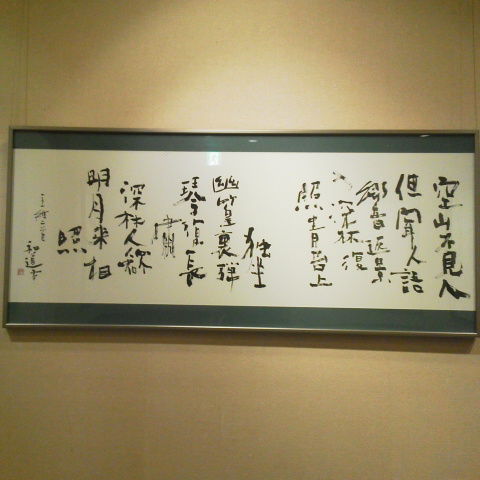 空山不見人
但聞人語
響返景
入深林復
照青苔上
独坐
幽篁裏弾
琴復長
嘯
深林人不知
明月来相
照